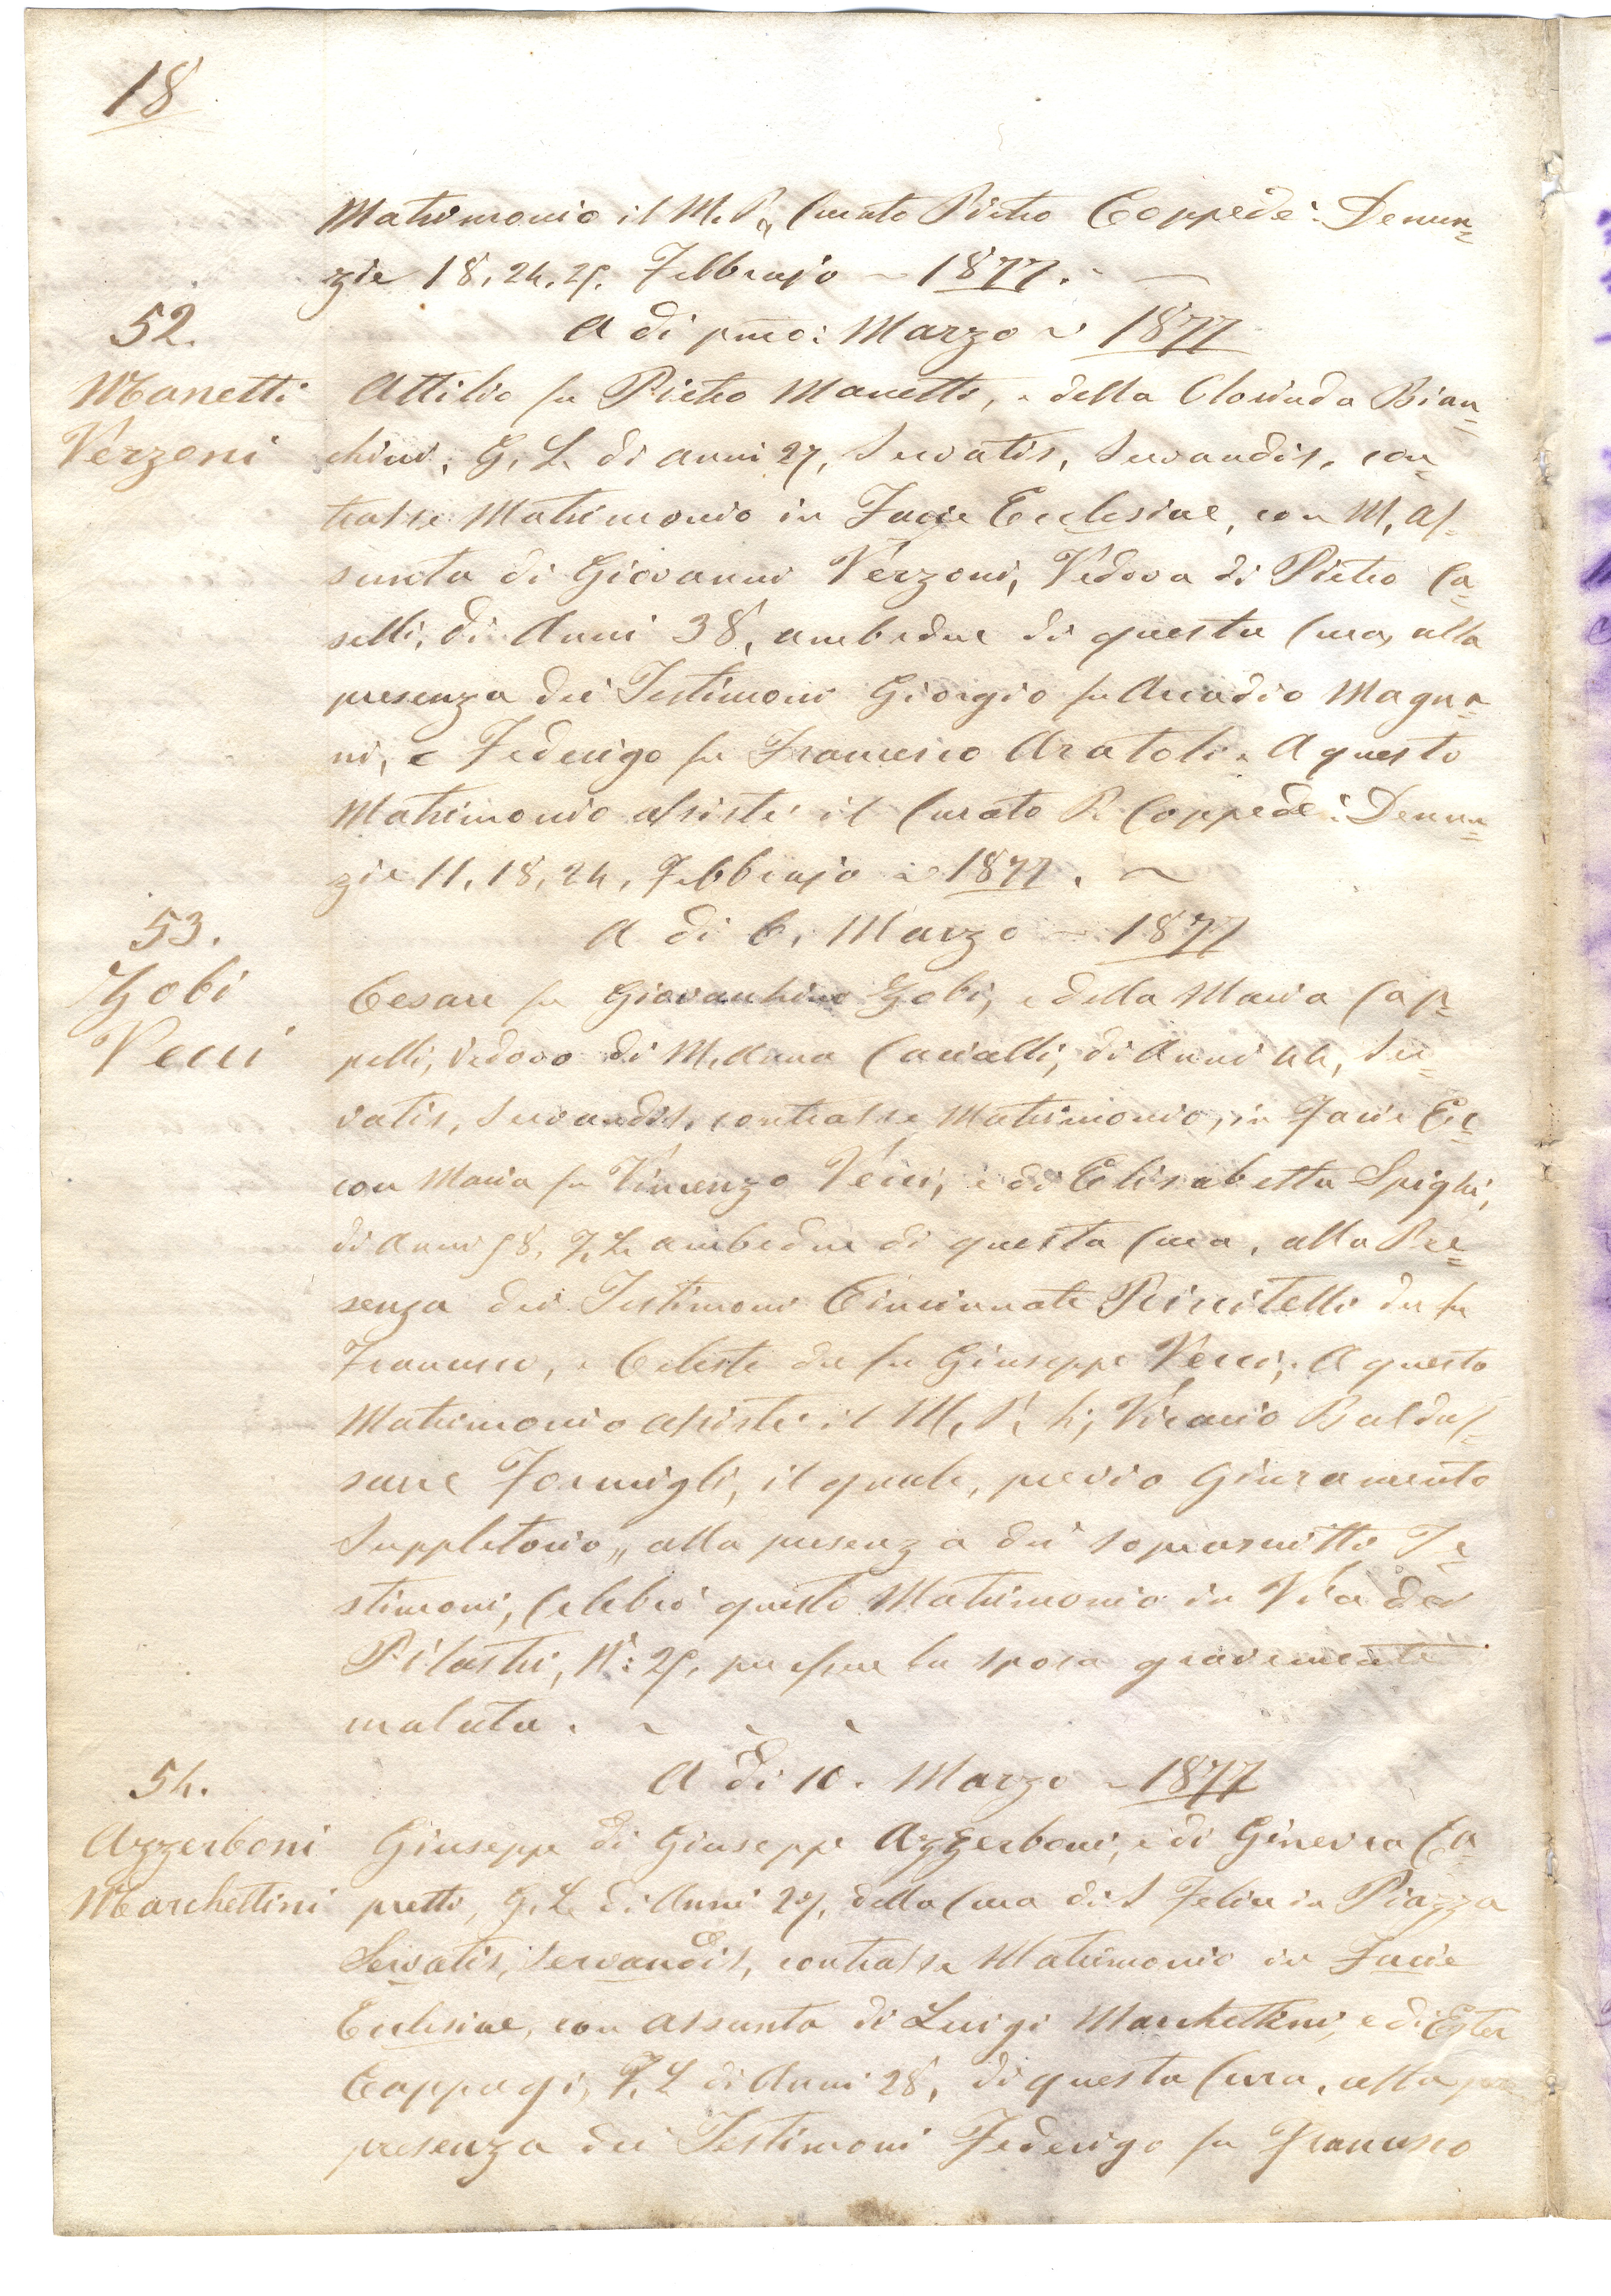 18
Matrimonio il M. R. Curato Pietro Coppedè: Denun=
zie 18, 24, 25, Febbrajo ~ 1877.
52.
A di pmo: Marzo ~ 1877
Manetti
Verzoni
Attilio fu Pietro Manetti, e della Clorinda Bian=
chini, G. L. di anni 27, Servatis, Servandis, con=
trasse Matrimonio in Facie Ecclesiae, con M. As=
sunta di Giovanni Verzoni, Vedova di Pietro Ca=
selli, di Anni 38, ambedue di questa Cura, alla
presenza dei Testimoni Giorgio fu Arcadio Magna=
ni, e Federigo fu Francesco Aratoli. A questo
Matrimonio assistè il Curato P. Coppedè: Denun=
zie 11, 18, 24, Febbrajo ~ 1877. ~
53.
A di 6. Marzo ~ 1877
Zobi
Vecci
Cesare fu Giovacchino Zobi, e della Maria Cap=
pelli, Vedovo di M. Anna Caciolli, di Anni 44, Ser=
vatis, Servandis, contrasse Matrimonio, in Facie Ec=
con Maria fu Vincenzo Vecci, e di Elisabetta Spighi,
di Anni 58, F. L. ambedue di questa Cura, alla Pre=
senza dei Testimoni Cincinnato Rinitelli del fu
Francesco, e Celeste del fu Giuseppe Vecci; A questo
Matrimonio assistè il M. R. Vicario Baldas=
sarre Formigli, il quale, previo Giuramento
Suppletorio, alla presenza dei sopranitti Te=
stimoni, Celebrò questo Matrimonio in Via dei
Pilastri, N: 25, per esser la sposa gravemente
malata.
54.
A di 10. Marzo ~ 1877
Azzerboni
Marchettini
Giuseppe di Giuseppe Azzerboni, e di Ginevra Ca=
pretti, G. L. di Anni 27, della Cura di S Felice in Piazza
Servatis, Servandis, contrasse Matrimonio in Facie
Ecclesiae, con Assunta di Luigi Marchettini, e di Ester
Cappugi, F. L. di Anni 28, di questa Cura, alla pre
presenza dei Testimoni Federigo fu Francesco